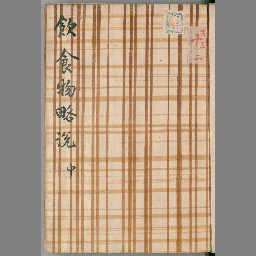 飲食物略説 中